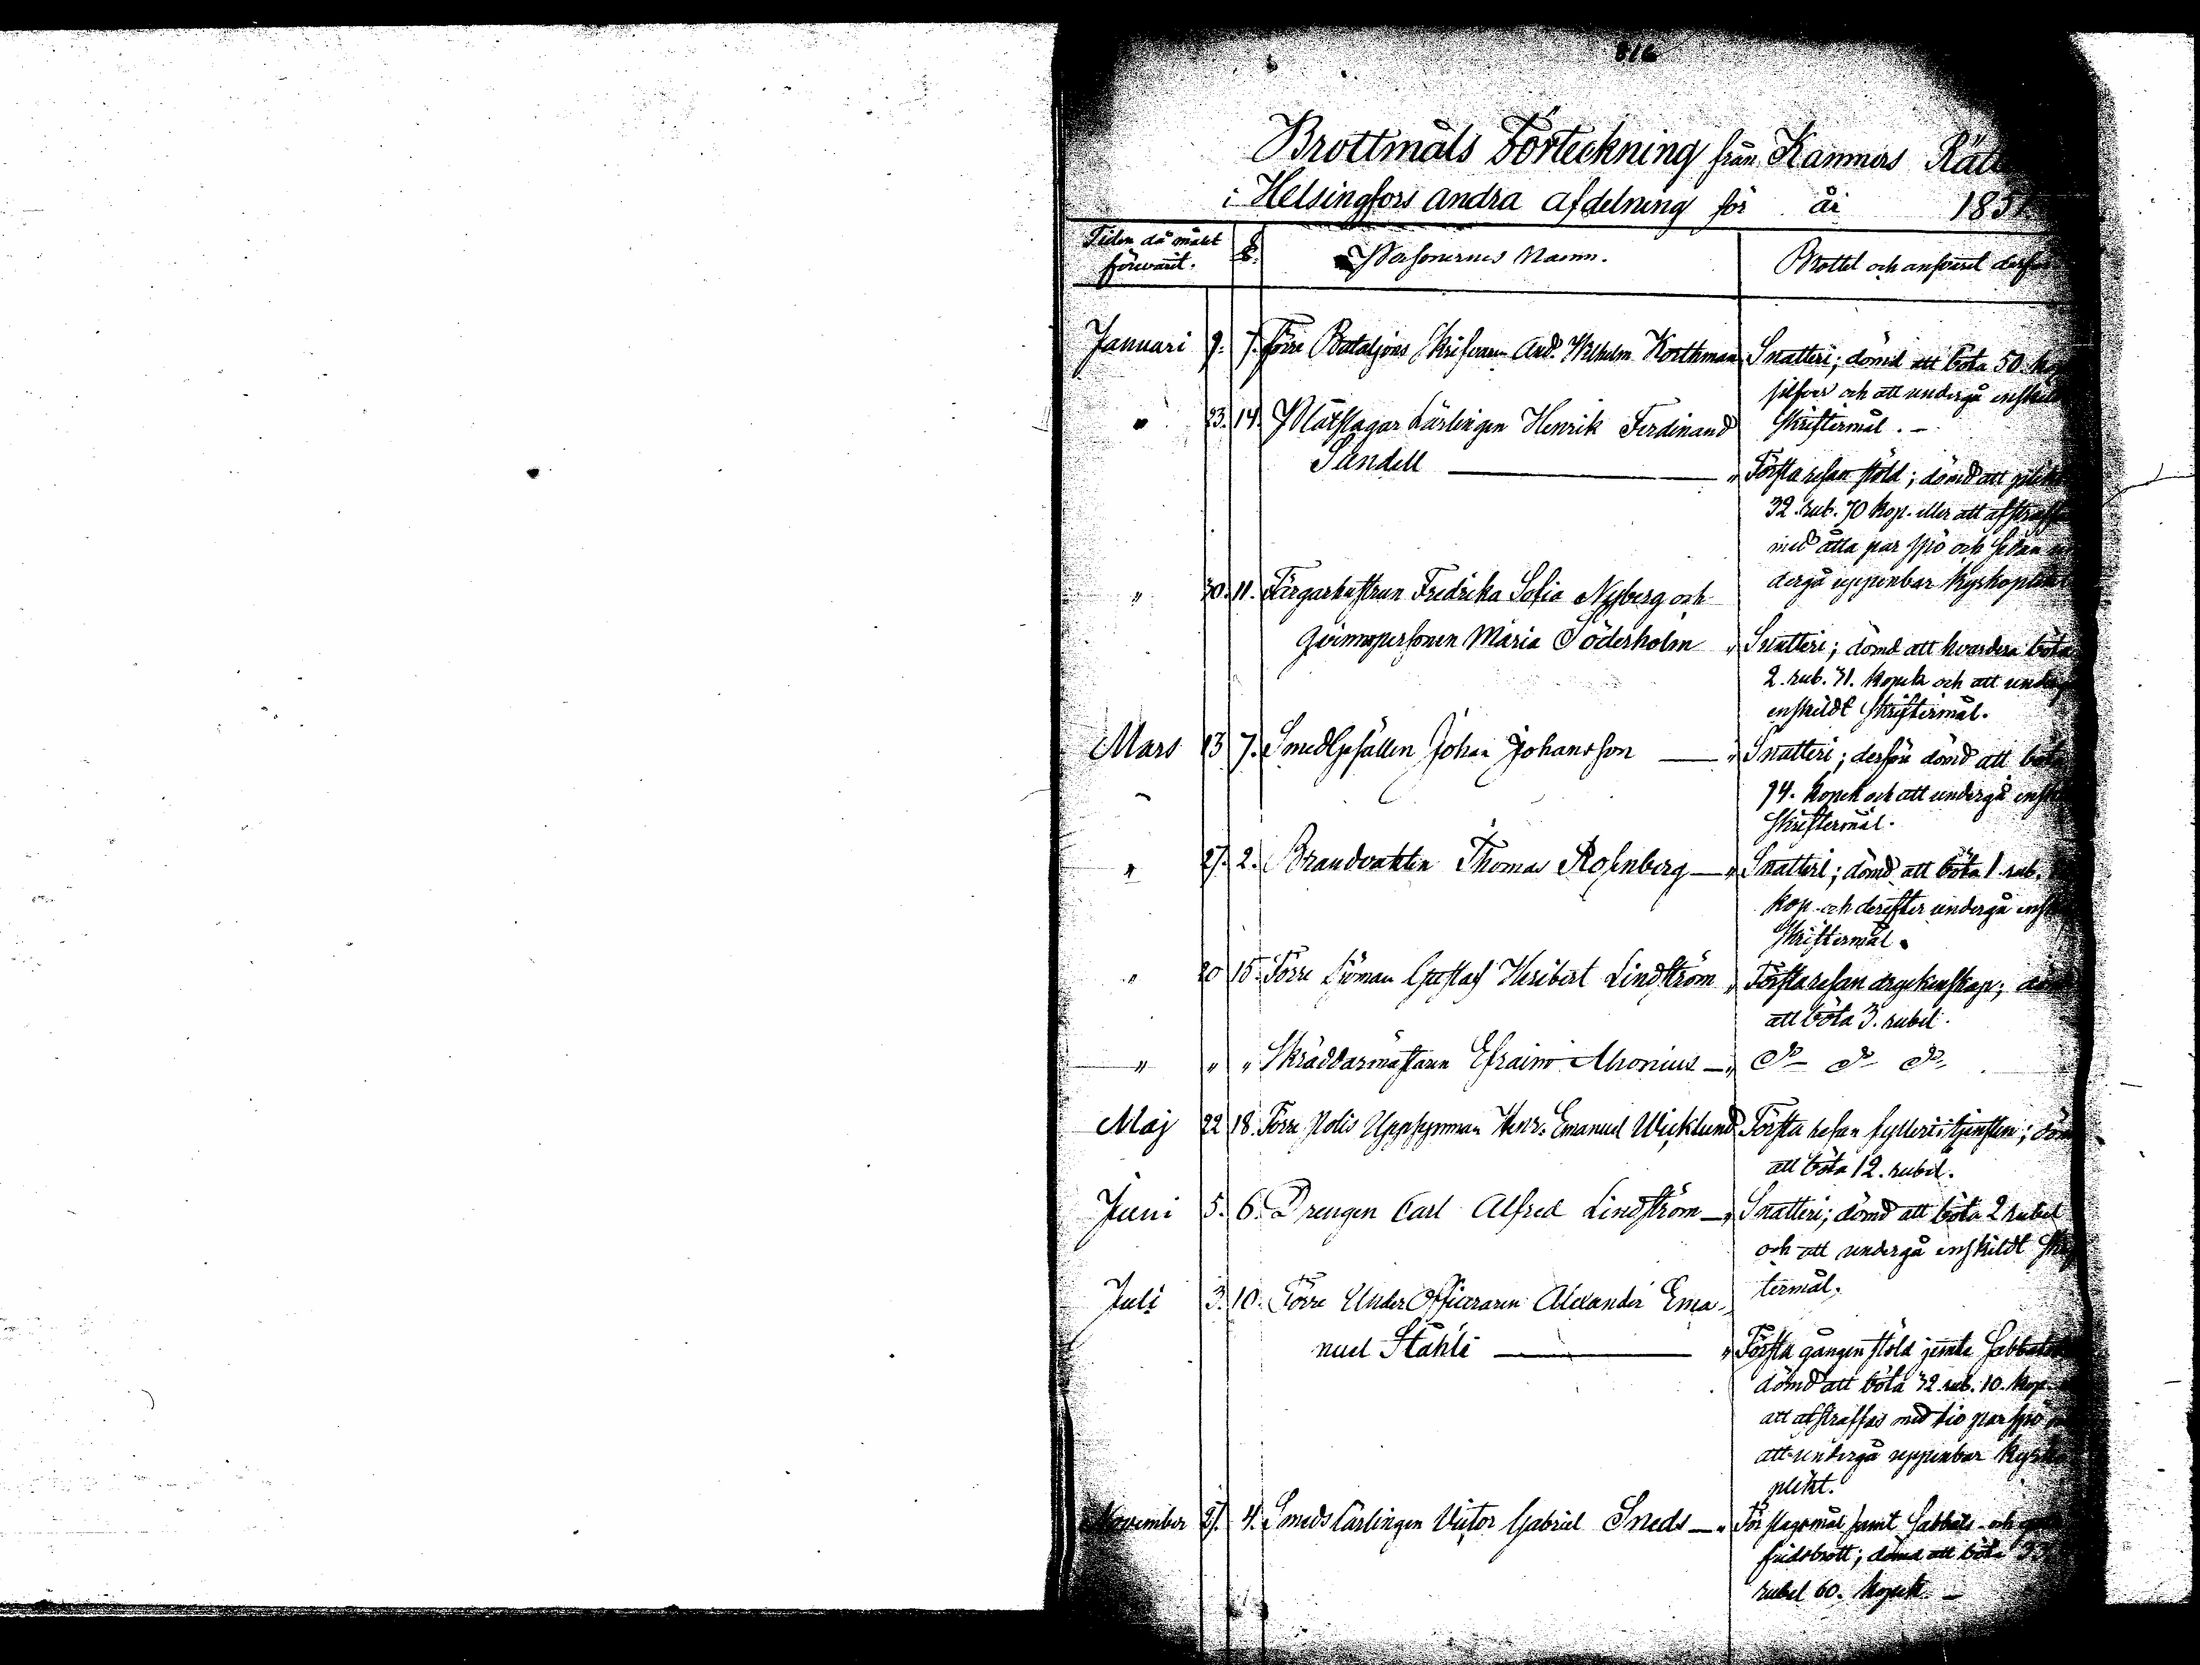 816
Brottmåls Förteckning från Kamners Rätt
i Helsingfors andra afdelning för år 185
Tiden då målet förevarit. § Personernes Namn. Brottet och ansvaret derför
Januari 9. 7. Förre Bataljons Skrifvaren And. Wilhelm Korthman Snatteri; dömd att böta 50. kop
silfver och att undergå enskildt
" 23. 14. Plåtslagar Lärlingen Henrik Ferdinand skriftermål. –
Sandell — " Första resan stöld; dömd att plikta
32. rub. 70 kop. eller att afstraffas
med åtta par spö och sedan un
dergå uppenbar kyrkoplikt
" 30. 11. Färgarhustrun Fredrika Sofia Nyberg och
Qvinnspersonen Maria Söderholm " Snatteri; dömd att hvardera böta
2. rub. 71. kopek och att undergå
enskildt skriftermål.
Mars 13 7. Smedgesällen Johan Johansson — " Snatteri; derför dömd att böta
94. kopek och att undergå
skriftermål.
" 27. 2. Brandvakten Thomas Rosenberg — " Snatteri; dömd att böta 1 rub.
kop. och derefter undergå
skriftermål.
" 20 15. Förre Länsman Gustaf Heribert Lindström " Första resan dryckenskap; dömd
att böta 3. rubel.
" " " Skräddarmästaren Efraim Alronius — " Do Do Do
Maj 22 18. Förre Polis Uppsynman Henr. Emanuel Wicklund Första resan fylleri i tjensten; dömd
att böta 12. rubel.
Juni 5. 6. Drengen Carl Alfred Lindström — " Snatteri; dömd att böta 2 rubel
och att undergå enskildt skrif
termål.
Juli 3. 10. Förre Under Officeraren Alexander Ema-
nuel Ståhle — " Första gången stöld jemte Sabbats
dömd att böta 32. rub. 10. kop.
att afstraffas med tio par spö
att undergå uppenbar kyrko
plikt.
November 27. 4. Smedslärlingen Victor Gabriel Sneds — " För slagsmål samt sabbats- och
fridsbrott; dömd att böta
rubel 60. kopek. –